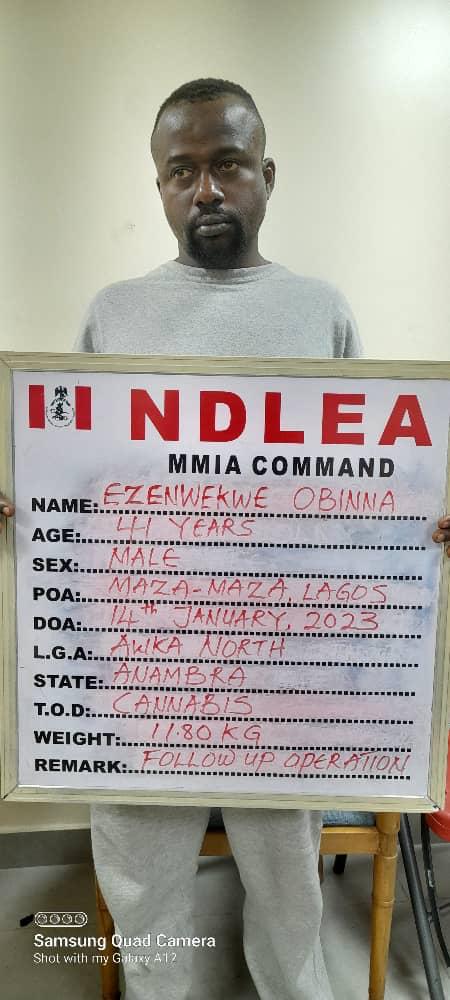 NDLEA
MMIA COMMAND
NAME: EZENWEKWE OBINNA
AGE: 41 YEARS
SEX: MALE
POA: MAZA-MAZA, LAGOS
DOA: 14th JANUARY, 2023
L.G.A: AWKA NORTH
STATE: ANAMBRA
T.O.D: CANNABIS
WEIGHT: 11.80 KG
REMARK: FOLLOW UP OPERATION
Samsung Quad Camera
Shot with my Galaxy A12